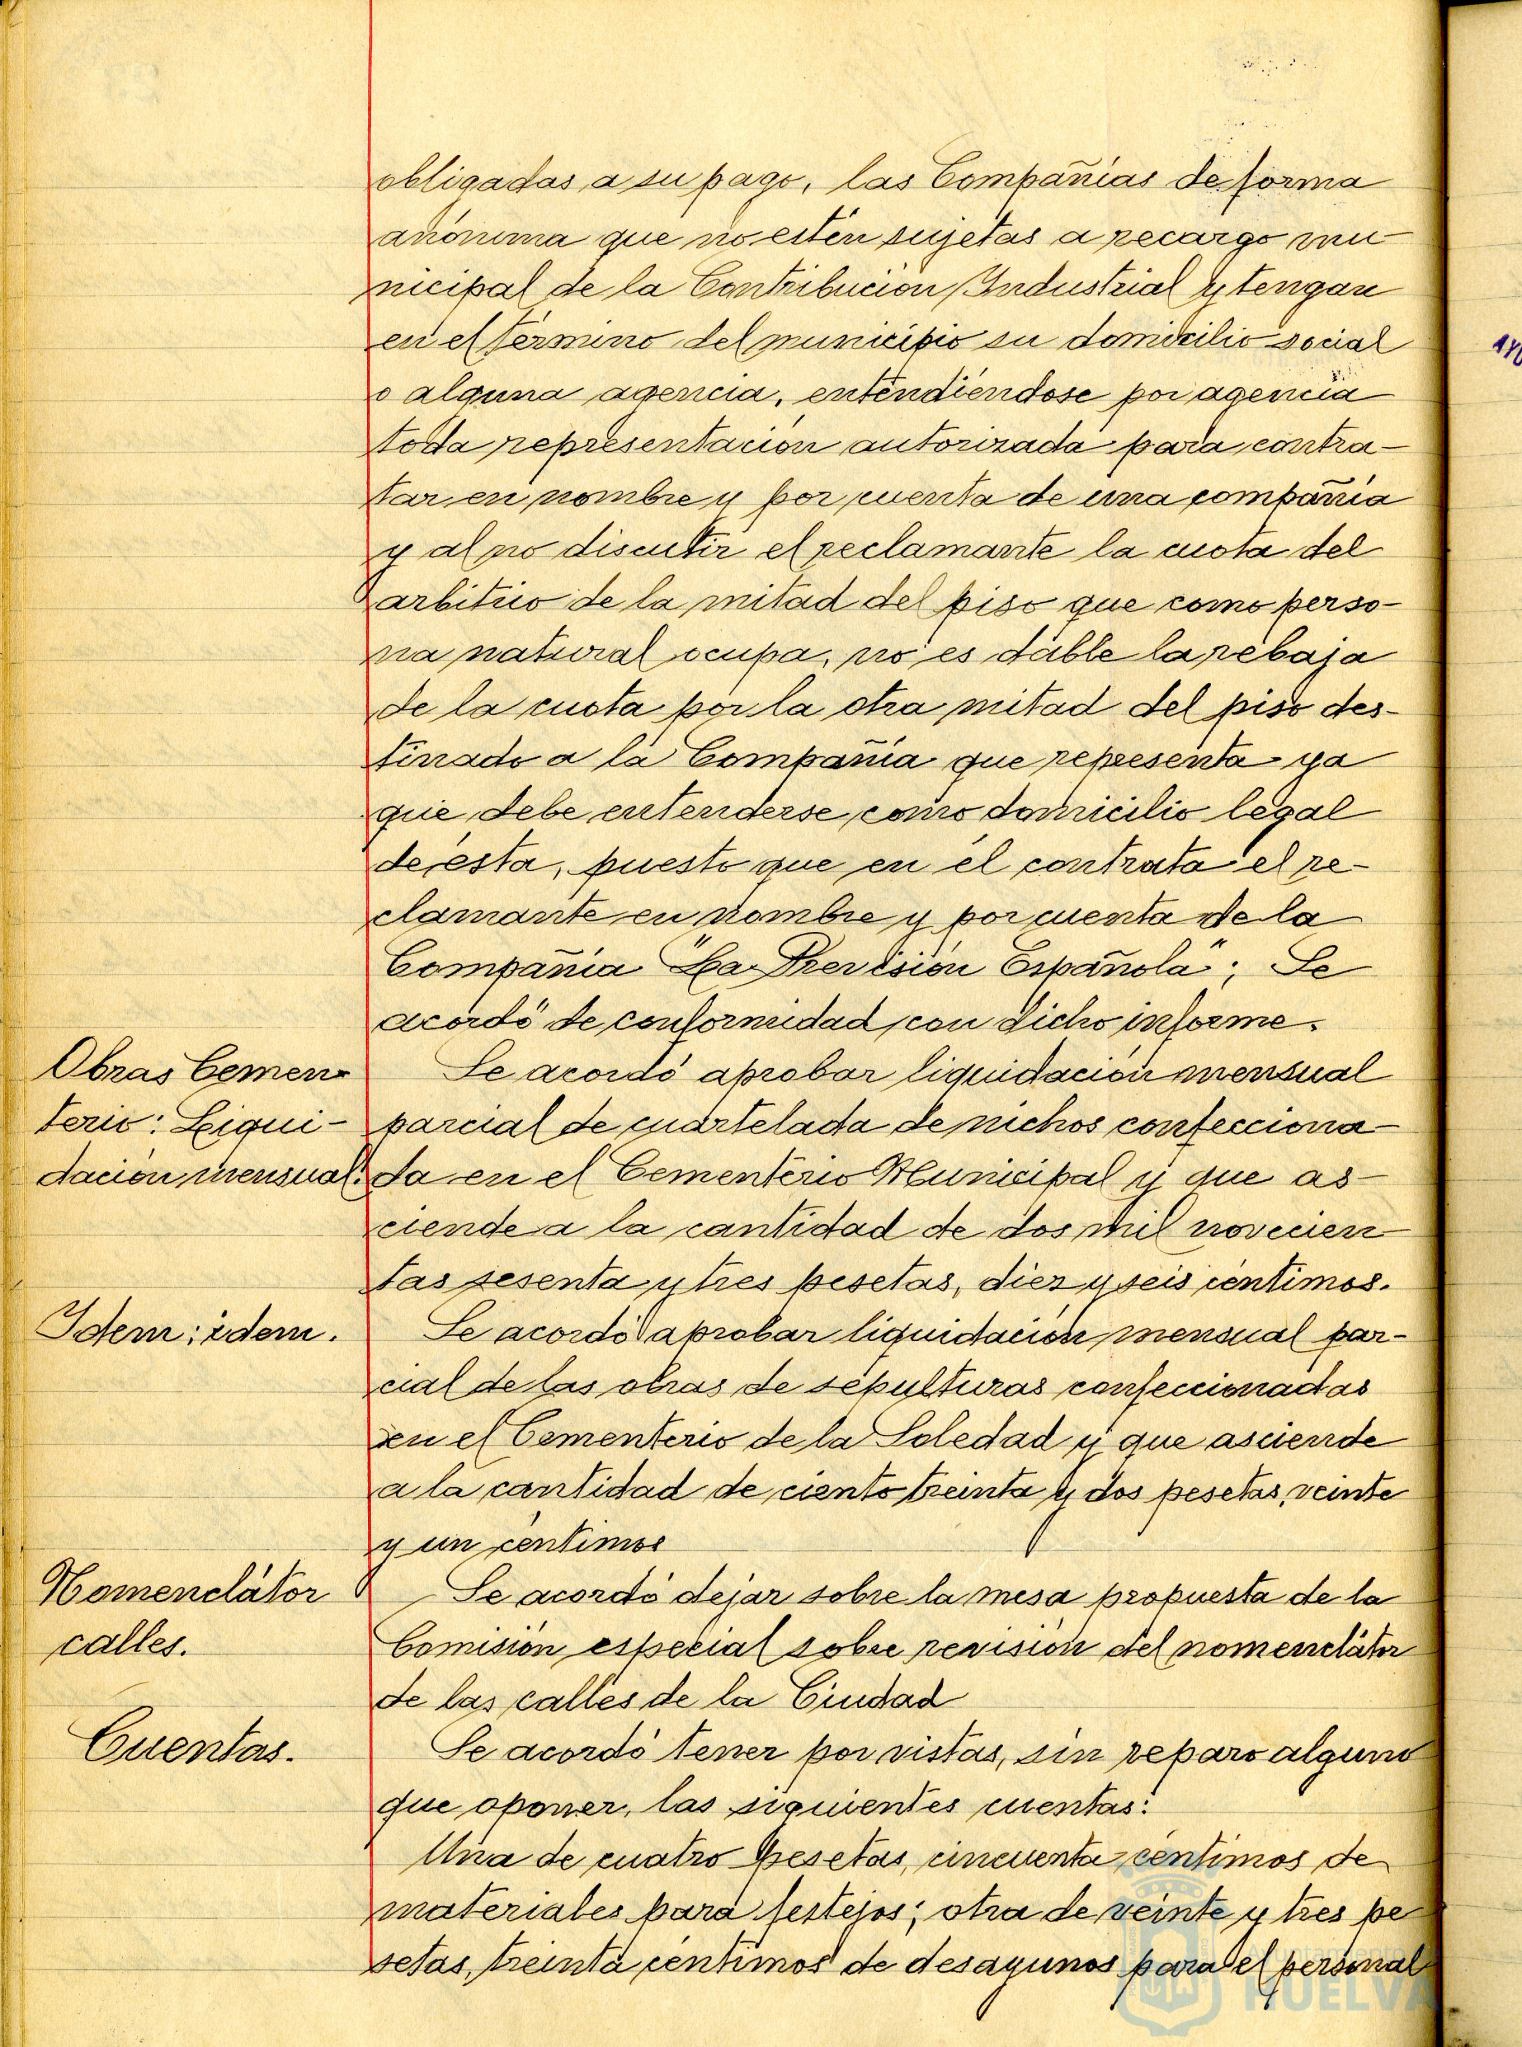 obligadas a su pago, las Compañías de forma
anónima que no estén sujetas a recargo mu-
nicipal de la Contribución Industrial y tengan
en el término del municipio su domicilio social
o alguna agencia, entendiéndose por agencia
toda representación autorizada para contra-
tar en nombre y por cuenta de una compañía
y al no discutir el reclamante la cuota del
arbitrio de la mitad del piso que como perso-
na natural ocupa, no es dable la rebaja
de la cuota por la otra mitad del piso des-
tinado a la Compañía que representa ya
que debe entenderse como domicilio legal
de ésta, puesto que en él contrata el re-
clamante en nombre y por cuenta de la
Compañía "La Previsión Española"; Se
acordó de conformidad con dicho informe.
Obras Cemen-
terio: Liqui-
dación mensual.
Se acordó aprobar liquidación mensual
parcial de cuartelada de nichos confecciona-
da en el Cementerio Municipal y que as-
ciende a la cantidad de dos mil novecien
tas sesenta y tres pesetas, diez y seis céntimos.
Idem; idem.
Se acordó aprobar liquidación mensual par-
cial de las obras de sepulturas confeccionadas
en el Cementerio de la Soledad y que asciende
a la cantidad de ciento treinta y dos pesetas, veinte
y un céntimos
Nomenclátor
calles.
Se acordó dejar sobre la mesa propuesta de la
Comisión especial sobre revisión del nomenclátor
de las calles de la Ciudad
Cuentas.
Se acordó tener por vistas, sin reparo alguno
que oponer, las siguientes cuentas:
Una de cuatro pesetas, cincuenta céntimos de
materiales para festejos; otra de veinte y tres pe
setas, treinta céntimos de desayunos para el personal
AYU
Ayuntamiento
HUELVA